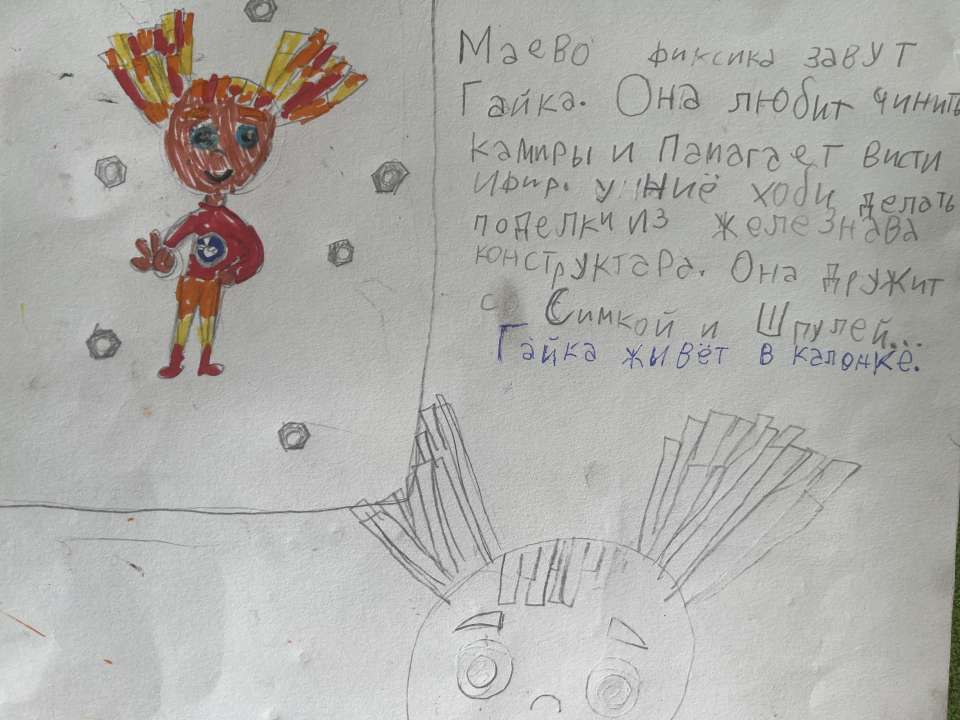 Маево фиксика завут
Гайка. Она любит чинить
камиры и Памагает висти
ифир. у ниё хоби делать
поделки из железнава
конструктара. Она дружит
с Симкой и Шпулей...
Гайка живёт в калонке.